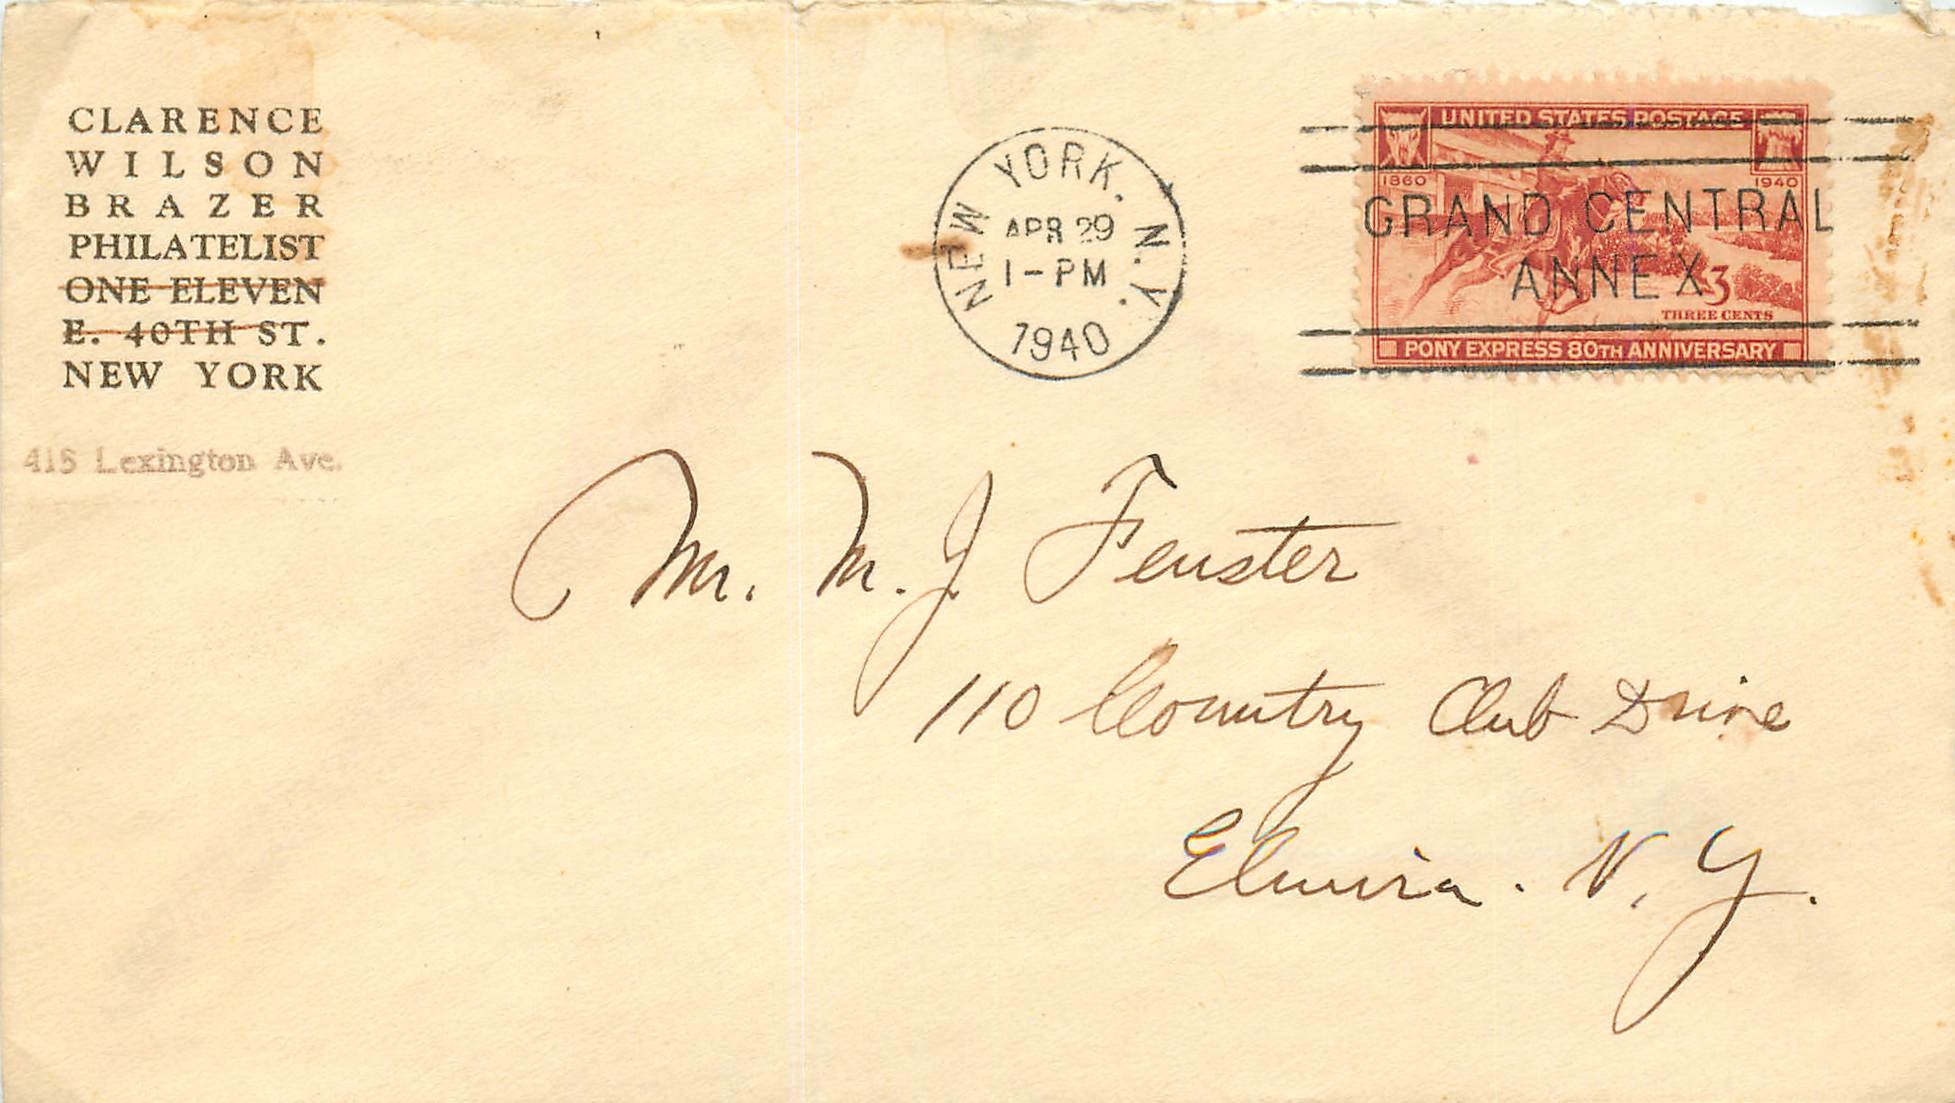 CLARENCE
WILSON
BRAZER
PHILATELIST
ONE ELEVEN
E. 40TH ST.
NEW YORK
415 Lexington Ave.
NEW YORK, N.Y.
APR 29
1-PM
1940
UNITED STATES POSTAGE
1860 1940
GRAND CENTRAL
ANNEX
3
THREE CENTS
PONY EXPRESS 80TH ANNIVERSARY
Mr. M. J. Fenster
110 Country Club Drive
Elmira. N. Y.